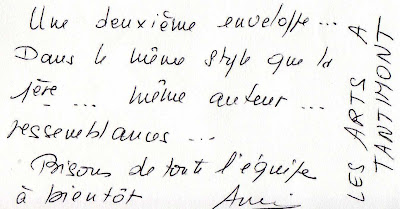 Une deuxième enveloppe...
Dans le même style que la
1ère ... même auteur...
ressemblances ...
Bisous de toute l'équipe
à bientôt
LES ARTS A
TANTIMONT